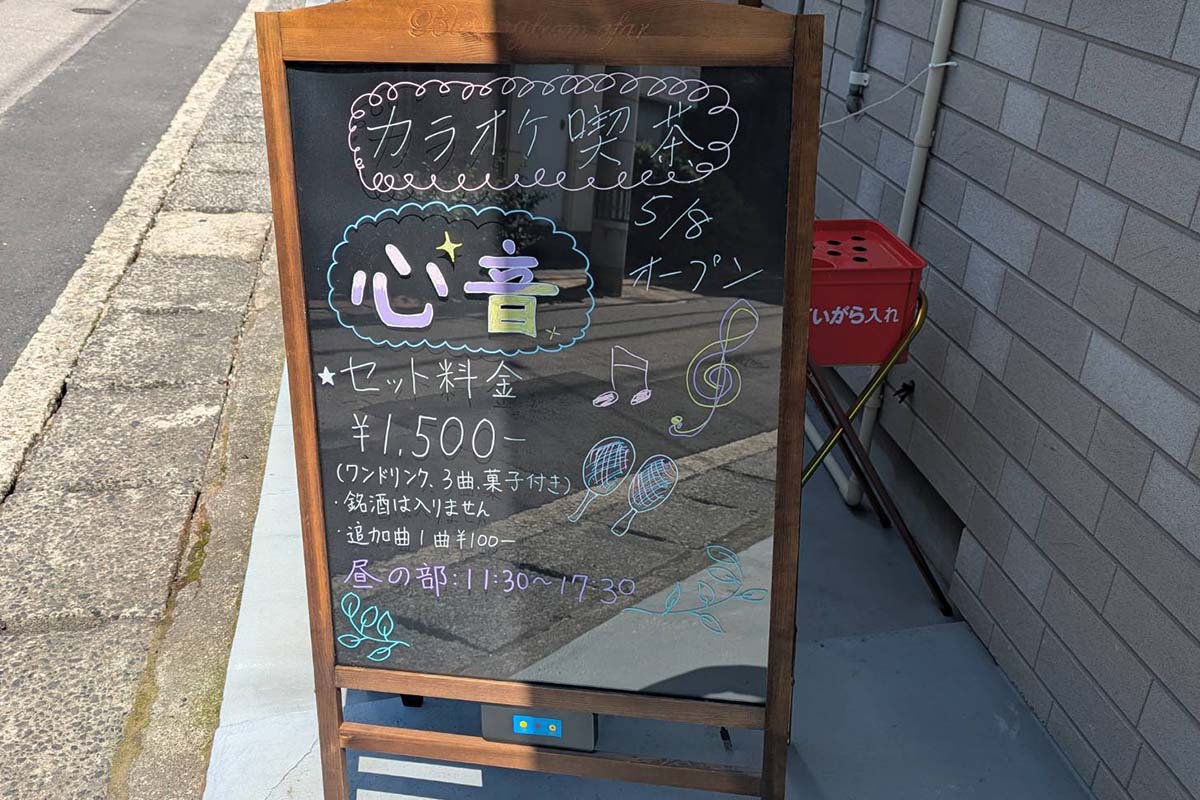 カラオケ喫茶
5/8
オープン
心音
★セット料金
¥1,500−
(ワンドリンク、3曲、菓子付き)
・銘酒は入りません
・追加曲1曲¥100−
昼の部:11:30~17:30
いがら入れ